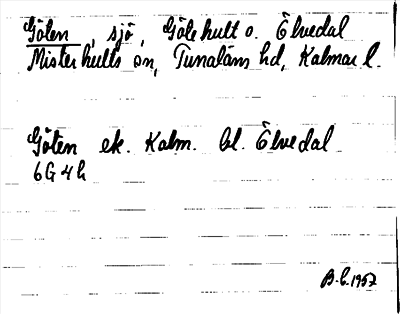 Gölen, sjö, Gölehult o. Älvedal
Misterhults sn, Tunaläns hd, Kalmar l.
Gölen ek. Kalm. bl. Älvedal
6G4h
B.L. 1957